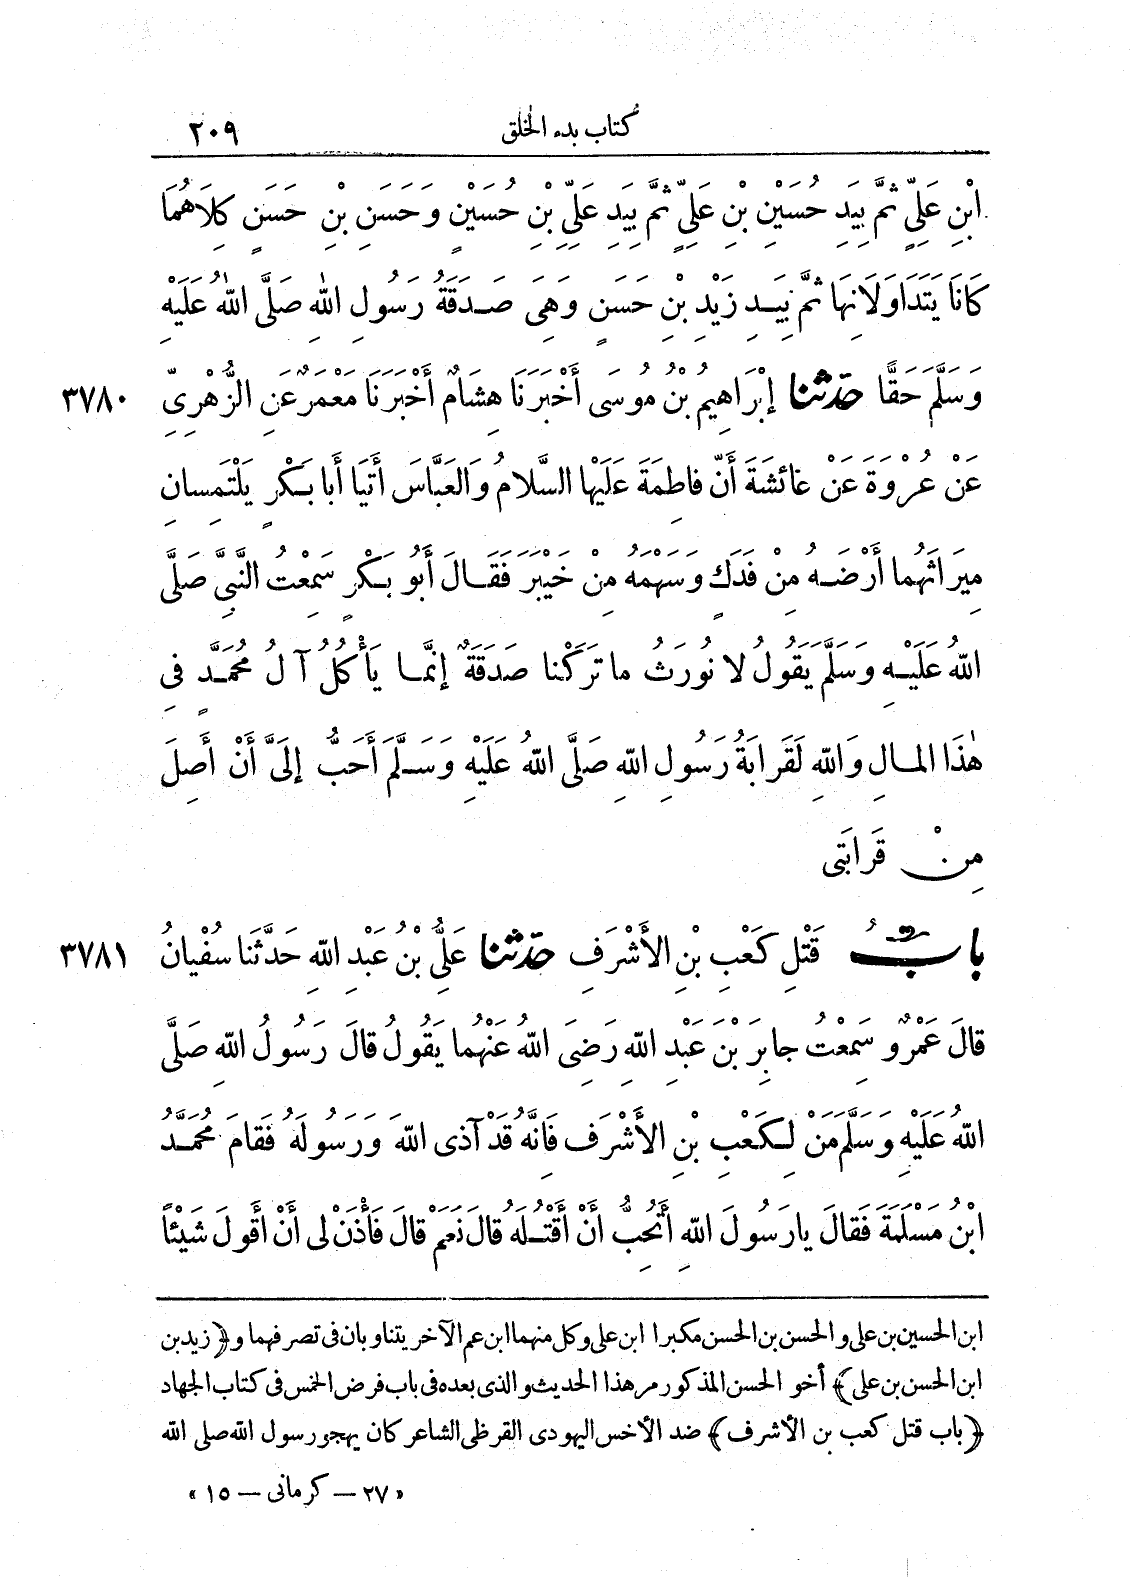 كتاب بدء الخلق ٢٠٩
ابْنِ عَلِيٍّ ثُمَّ بِيَدِ حُسَيْنِ بْنِ عَلِيٍّ ثُمَّ بِيَدِ عَلِيِّ بْنِ حُسَيْنٍ وحَسَنِ بْنِ حَسَنٍ كِلَاهُمَا
كَانَا يَتَدَاوَلَانِهَا ثُمَّ بِيَدِ زَيْدِ بْنِ حَسَنٍ وَهِيَ صَدَقَةُ رَسُولِ اللهِ صَلَّى اللهُ عَلَيْهِ
وَسَلَّمَ حَقًّا حدثنا إِبْرَاهِيمُ بْنُ مُوسَى أَخْبَرَنَا هِشَامٌ أَخْبَرَنَا مَعْمَرٌ عَنِ الزُّهْرِيِّ ٣٧٨٠
عَنْ عُرْوَةَ عَنْ عَائِشَةَ أَنَّ فَاطِمَةَ عَلَيْهَا السَّلَامُ وَالعَبَّاسَ أَتَيَا أَبَا بَكْرٍ يَلْتَمِسَانِ
مِيرَاثَهُمَا أَرْضَهُ مِنْ فَدَكٍ وَسَهْمَهُ مِنْ خَيْبَرَ فَقَالَ أَبُو بَكْرٍ سَمِعْتُ النَّبِيَّ صَلَّى
اللهُ عَلَيْهِ وَسَلَّمَ يَقُولُ لا نُورَثُ ما تَرَكْنا صَدَقَةٌ إِنَّمَا يَأْكُلُ آلُ مُحَمَّدٍ فِي
هٰذَا المَالِ وَاللهِ لَقَرَابَةُ رَسُولِ اللهِ صَلَّى اللهُ عَلَيْهِ وَسَلَّمَ أَحَبُّ إِلَىَّ أَنْ أَصِلَ
مِنْ قَرَابَتِي
بابُ قَتْلِ كَعْبِ بْنِ الأَشْرَفِ حدثنا عَلِيُّ بْنُ عَبْدِ اللهِ حَدَّثَنَا سُفْيانُ ٣٧٨١
قَالَ عَمْرٌو سَمِعْتُ جابِرَ بْنَ عَبْدِ اللهِ رَضِيَ اللهُ عَنْهُما يَقُولُ قالَ رَسُولُ اللهِ صَلَّى
اللهُ عَلَيْهِ وَسَلَّمَ مَنْ لِكَعْبِ بْنِ الأَشْرَفِ فَانَّهُ قَدْ آذى اللهَ وَرَسُولَهُ فَقامَ مُحَمَّدُ
ابْنُ مَسْلَمَةَ فَقالَ يارَسُولَ اللهِ أَتُحِبُّ أَنْ أَقْتُلَهُ قالَ نَعَمْ قالَ فَأْذَنْ لى أَنْ أَقُولَ شَيْئاً
ابن الحسين بن على و الحسن بن الحسن مكبرا ابن على وكل منهما ابن عم الآخر يتناوبان فى تصرفهما و ﴿زيد بن
ابن الحسن بن على﴾ أخو الحسن المذكور مر هذا الحديث والذى بعده فى باب فرض الخمس فى كتاب الجهاد
﴿باب قتل كعب بن الأشرف﴾ ضد الأخس اليهودى القرظى الشاعر كان يهجو رسول الله صلى الله
« ٢٧ – كرمانى – ١٥ »